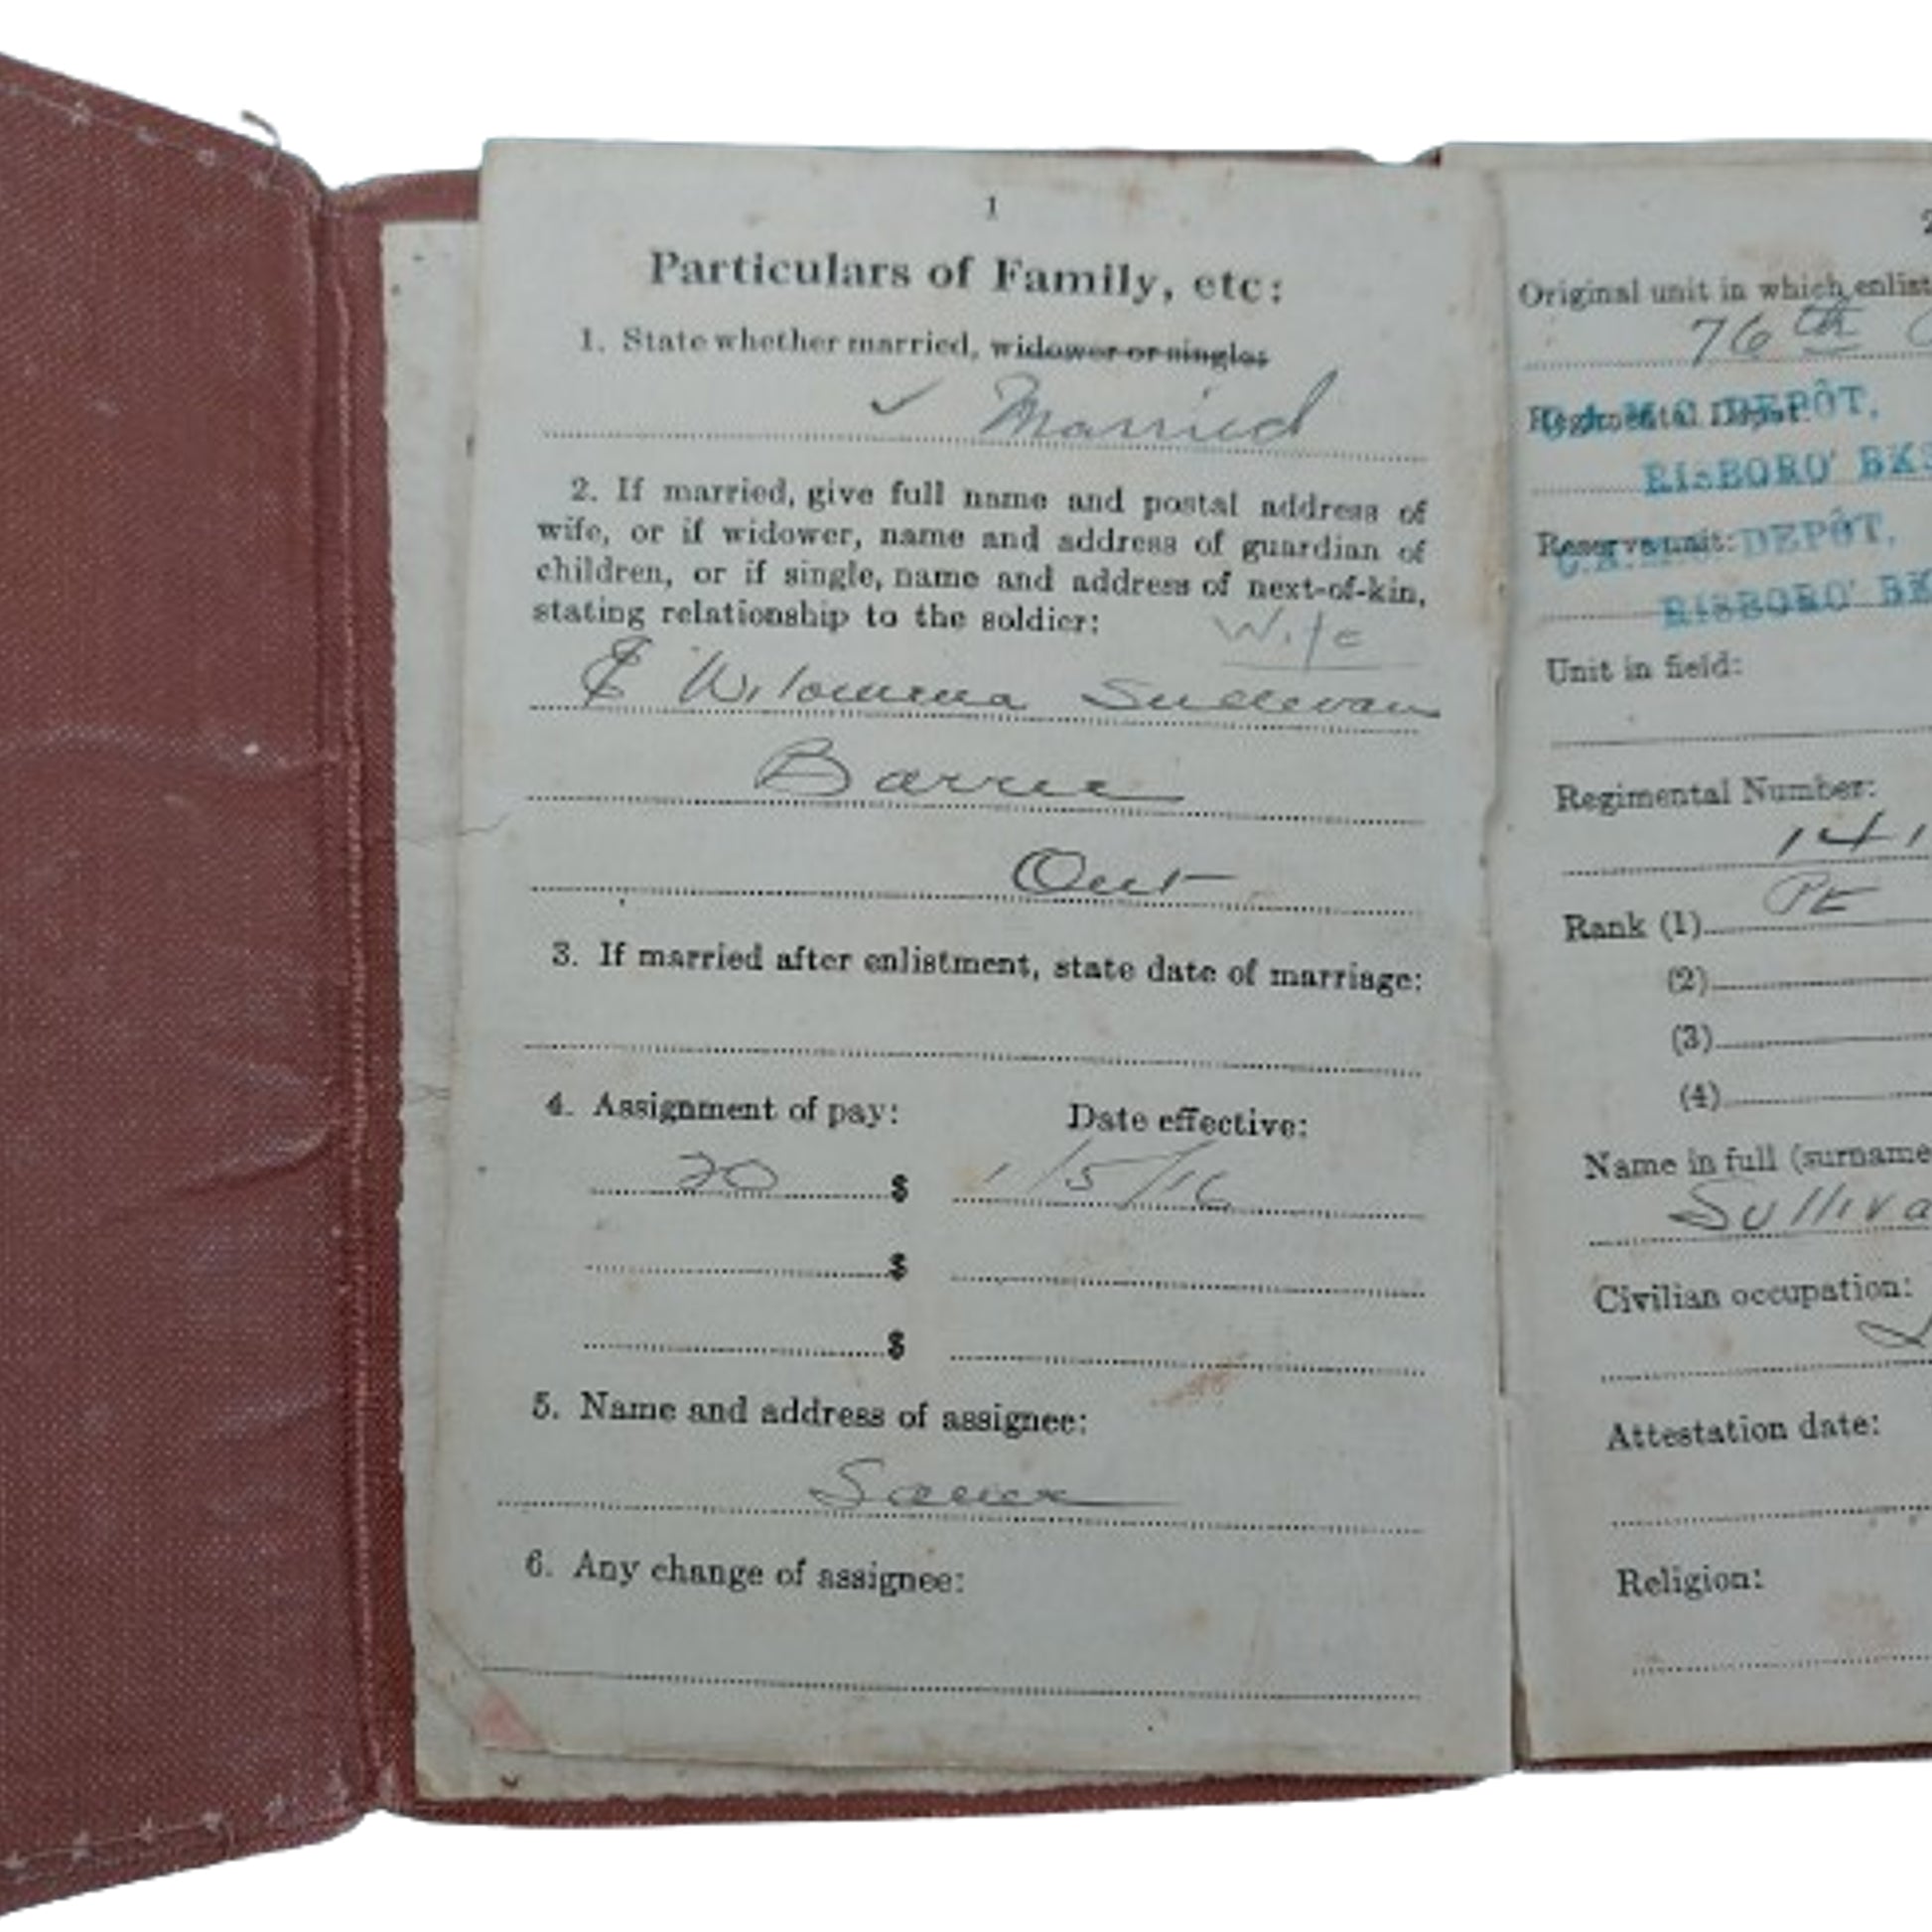 1
Particulars of Family, etc:
1. State whether married, widower or single:
✓ Married
2. If married, give full name and postal address of
wife, or if widower, name and address of guardian of
children, or if single, name and address of next-of-kin,
stating relationship to the soldier:
Wife
Wilomena Sullivan
Barrie
Ont
3. If married after enlistment, state date of marriage:
4. Assignment of pay: Date effective:
20 $ 1/5/16
$
$
5. Name and address of assignee:
Same
6. Any change of assignee:
2
Original unit in which enlist
76th
Regimental Depot:
C.A.M.C. DEPÔT,
RISBORO' BKS
Reserve unit:
C.A.M.C. DEPÔT,
RISBORO' BK
Unit in field:
Regimental Number:
141
Rank (1) Pte
(2)
(3)
(4)
Name in full (surname
Sulliva
Civilian occupation:
Attestation date:
Religion: